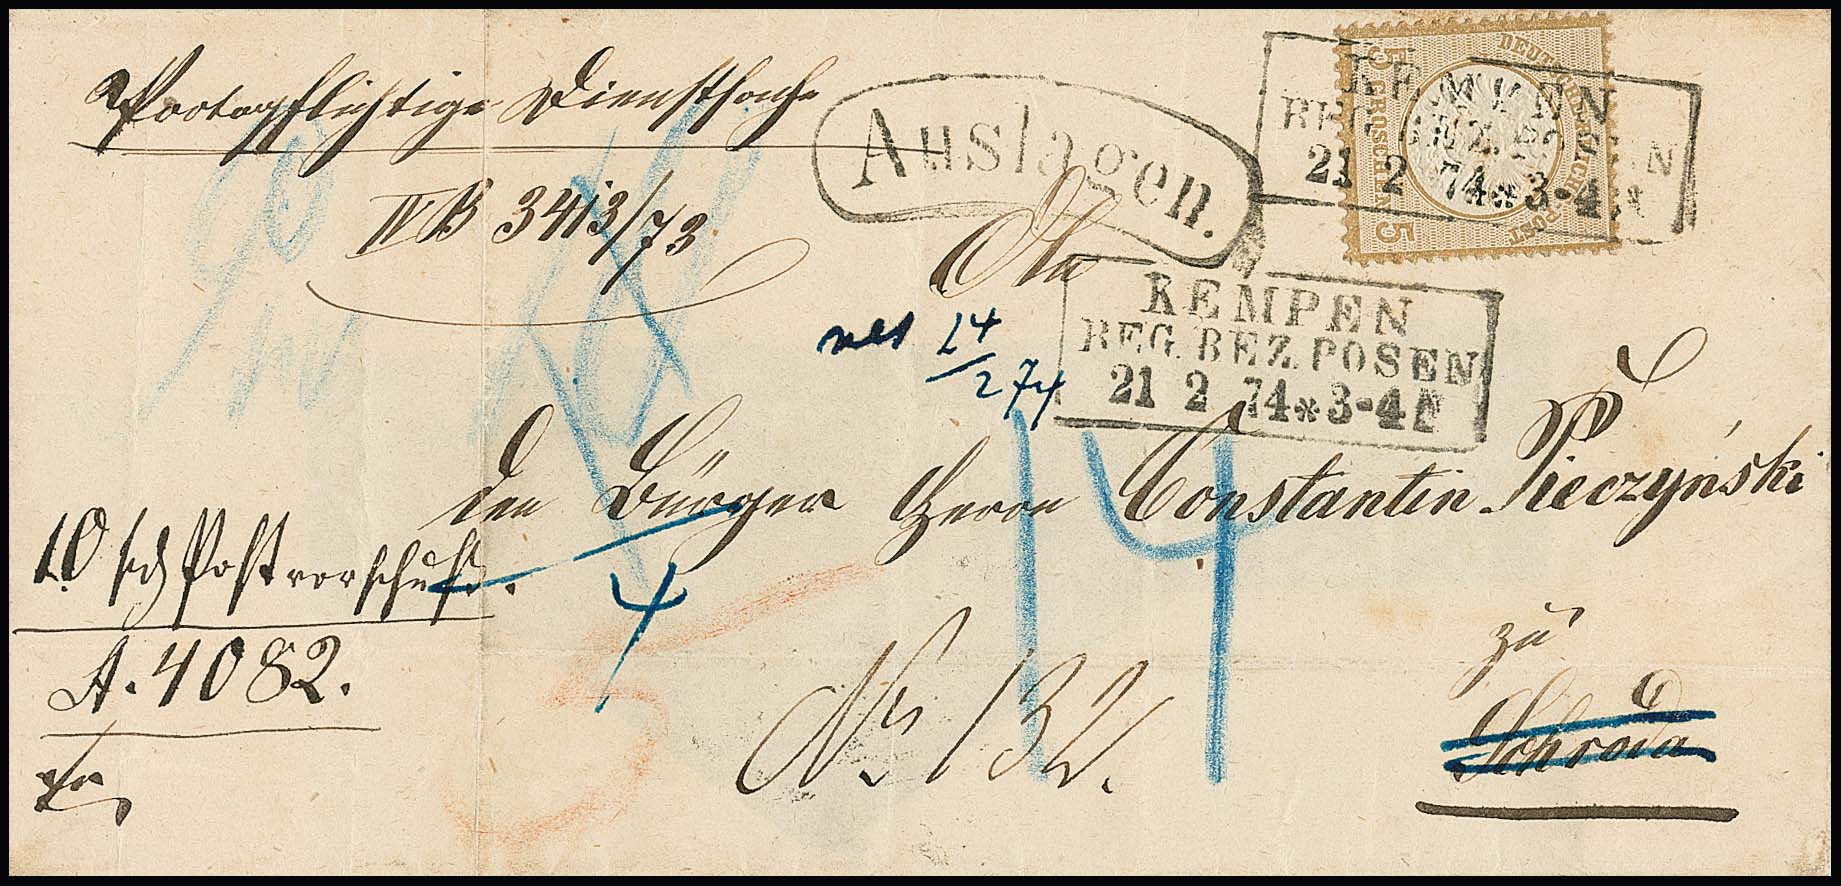 Portopflichtige Dienstsache
IV B 3413/73
Auslagen.
KEMPEN
REG. BEZ. POSEN
21 2 74 * 3-4 N
DEUTSCHE REICHS-POST
5 GROSCHEN 5
An
24/2 74
KEMPEN
REG. BEZ. POSEN
21 2 74 * 3-4 N
den Bürger Herrn Constantin Pieczyński
14
10 sg Postvorschuß.
4
A. 4082.
zu
No 132.
Schroda